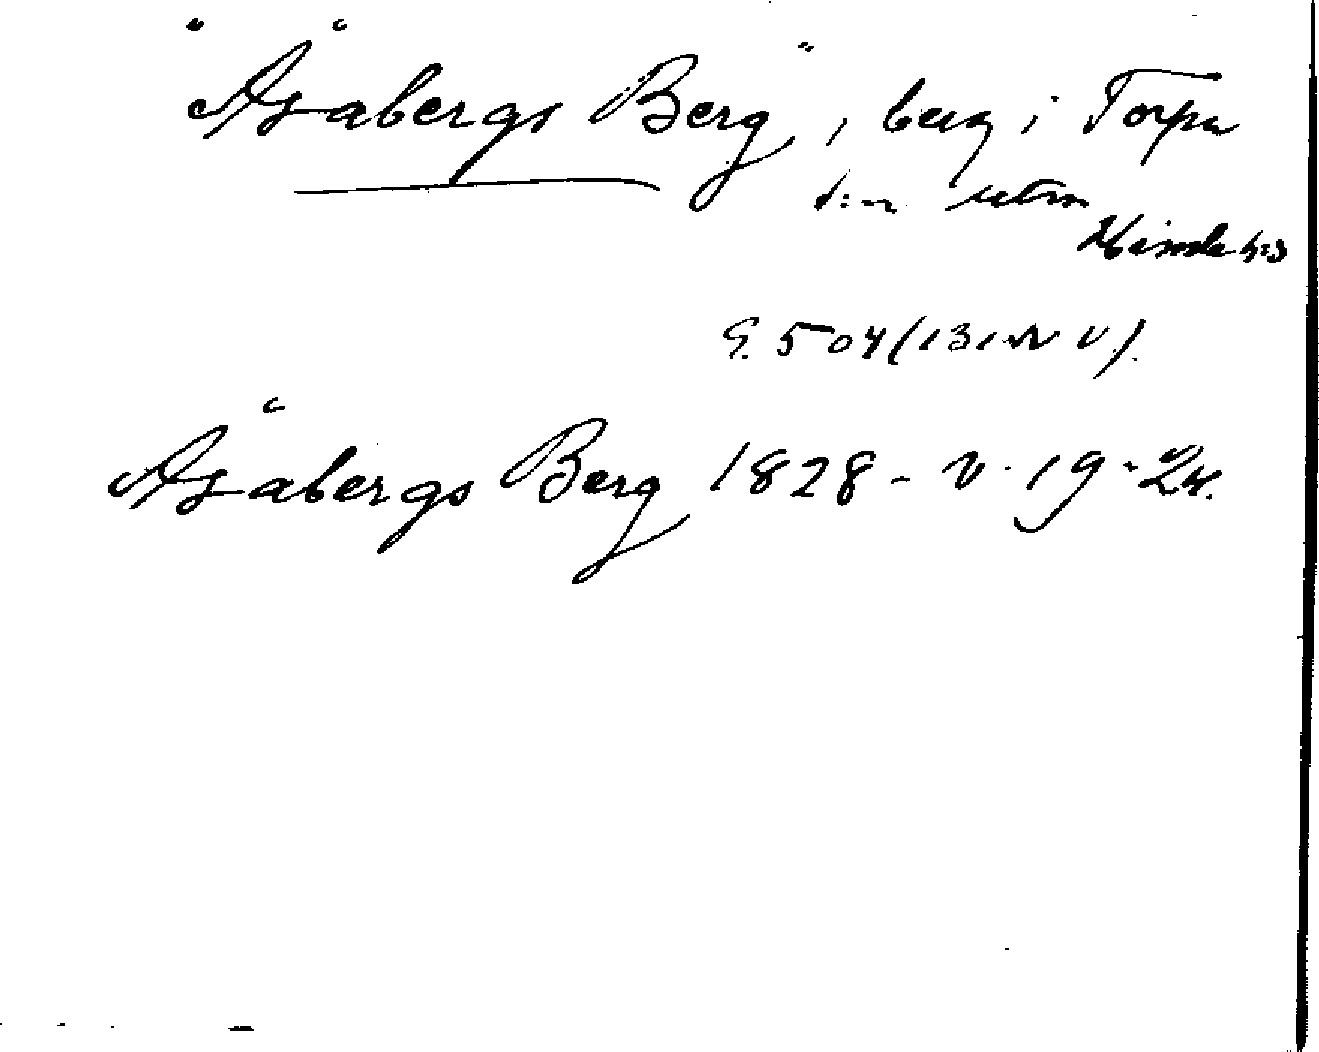 "Åsabergs Berg", berg i Torpa
s:n utm
Himle h:d
G. 504 (1311 NV).
Åsabergs Berg 1828 - V. 19-24.